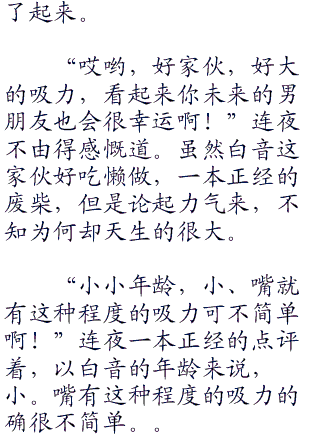 了起来。
“哎哟，好家伙，好大
的吸力，看起来你未来的男
朋友也会很幸运啊！”连夜
不由得感慨道。虽然白音这
家伙好吃懒做，一本正经的
废柴，但是论起力气来，不
知为何却天生的很大。
“小小年龄，小、嘴就
有这种程度的吸力可不简单
啊！”连夜一本正经的点评
着，以白音的年龄来说，
小。嘴有这种程度的吸力的
确很不简单。。